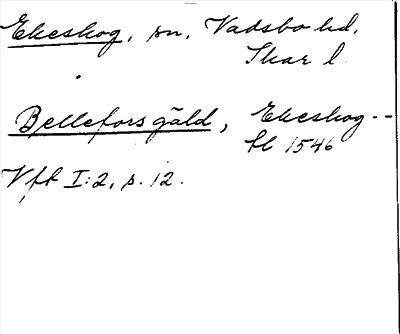 Ekeskog, sn, Vadsbo hd,
Skar l.
Bellefors gäld, Ekeskog --
hl 1546
Vft I:2, s. 12.